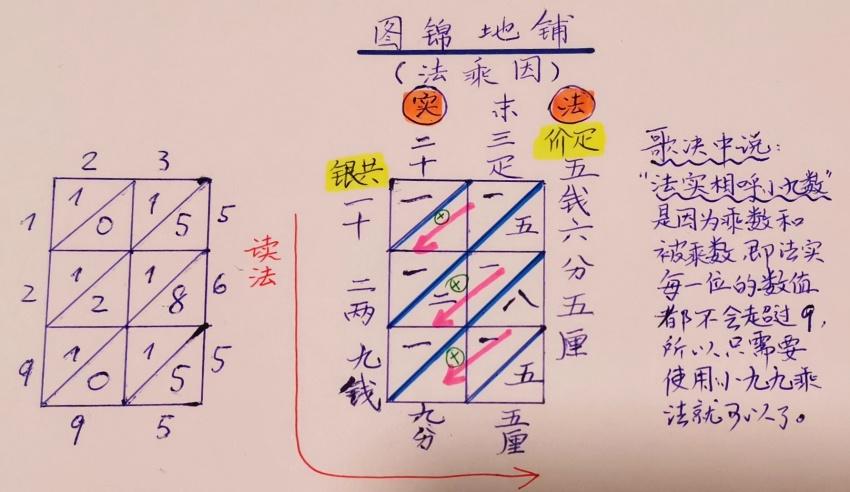 图锦地铺
(法乘因)
实 末 法
二十 三疋 价疋
银共
一十
二两
九钱
五钱六分五厘
一 一五
一二 一八
一 一五
九分 五厘
读法
2 3
1 1 0 1 5 5
2 1 2 1 8 6
9 1 0 1 5 5
9 5
歌决中说:
"法实相呼小九数"
是因为乘数和
被乘数,即法实
每一位的数值
都不会超过9,
所以只需要
使用小九九乘
法就可以了。